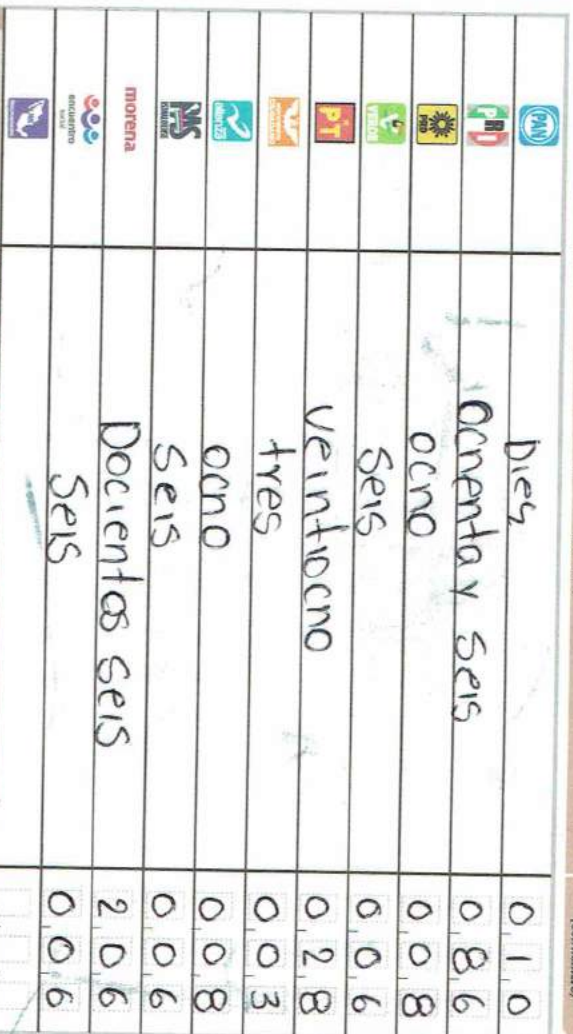 PAN Dies 0 1 0
PRI Ochenta y Seis 0 8 6
PRD ocho 0 0 8
VERDE Seis 0 0 6
PT Veintiocho 0 2 8
tres 0 0 3
alianza ocho 0 0 8
MS Seis 0 0 6
morena Docientos Seis 2 0 6
encuentro social Seis 0 0 6